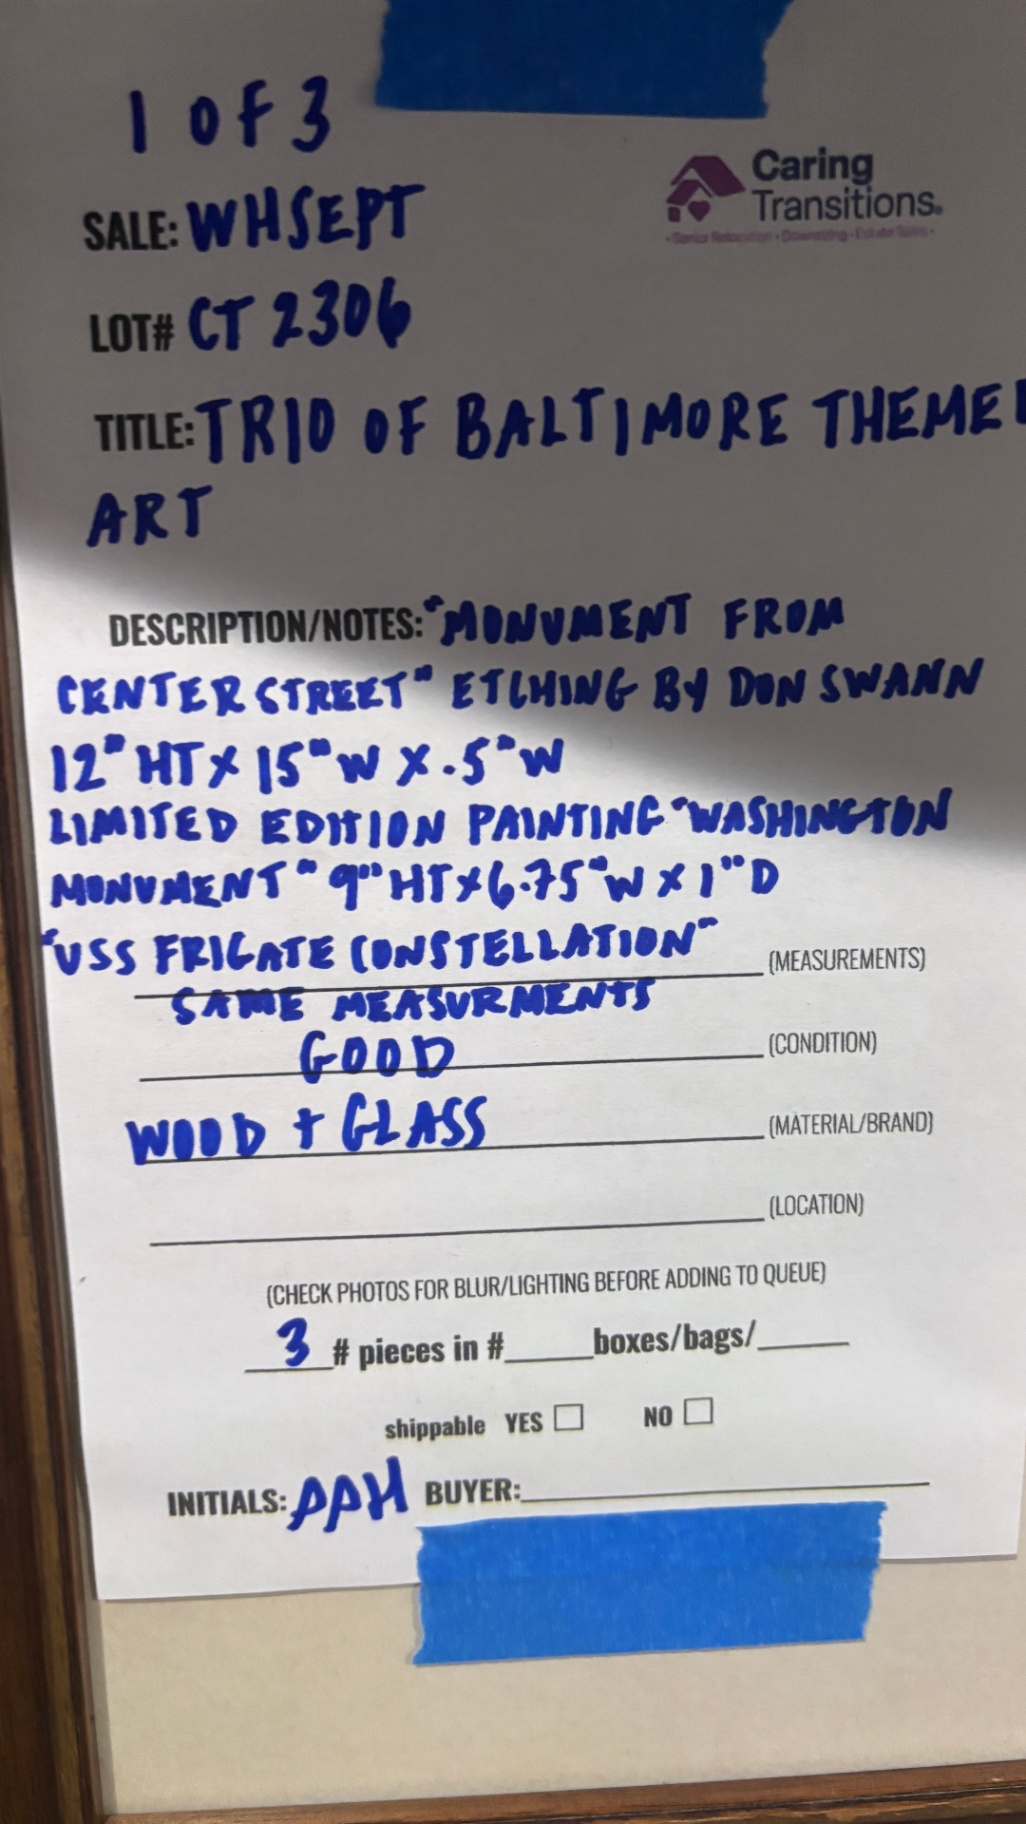 1 OF 3
Caring
Transitions.
• Senior Relocation • Downsizing • Estate Sales •
SALE: WHSEPT
LOT# CT 2306
TITLE: TRIO OF BALTIMORE THEMED
ART
DESCRIPTION/NOTES: "MONUMENT FROM
CENTER STREET" ETCHING BY DON SWANN
12" HT X 15" W X .5" W
LIMITED EDITION PAINTING "WASHINGTON
MONUMENT" 9" HT X 6.75" W X 1" D
"USS FRIGATE CONSTELLATION" (MEASUREMENTS)
SAME MEASURMENTS
GOOD (CONDITION)
WOOD + GLASS (MATERIAL/BRAND)
(LOCATION)
(CHECK PHOTOS FOR BLUR/LIGHTING BEFORE ADDING TO QUEUE)
3 # pieces in #_____boxes/bags/_____
shippable YES ☐ NO ☐
INITIALS: PPH BUYER: